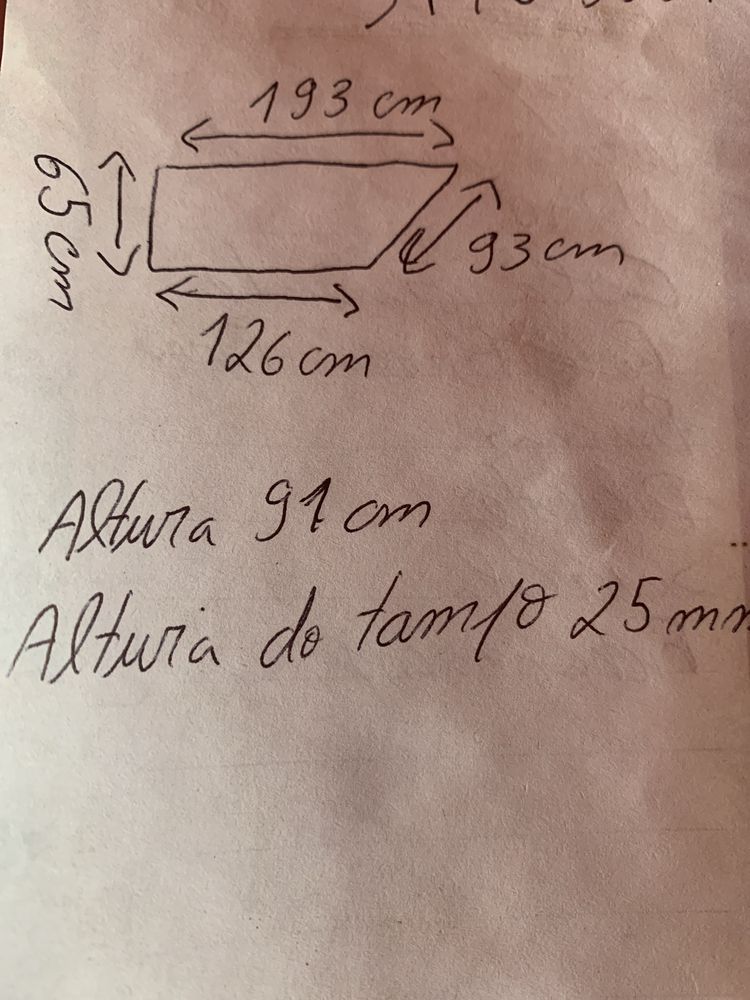 193 cm
65 cm
93 cm
126 cm
Altura 91 cm
Altura do tampo 25 mm